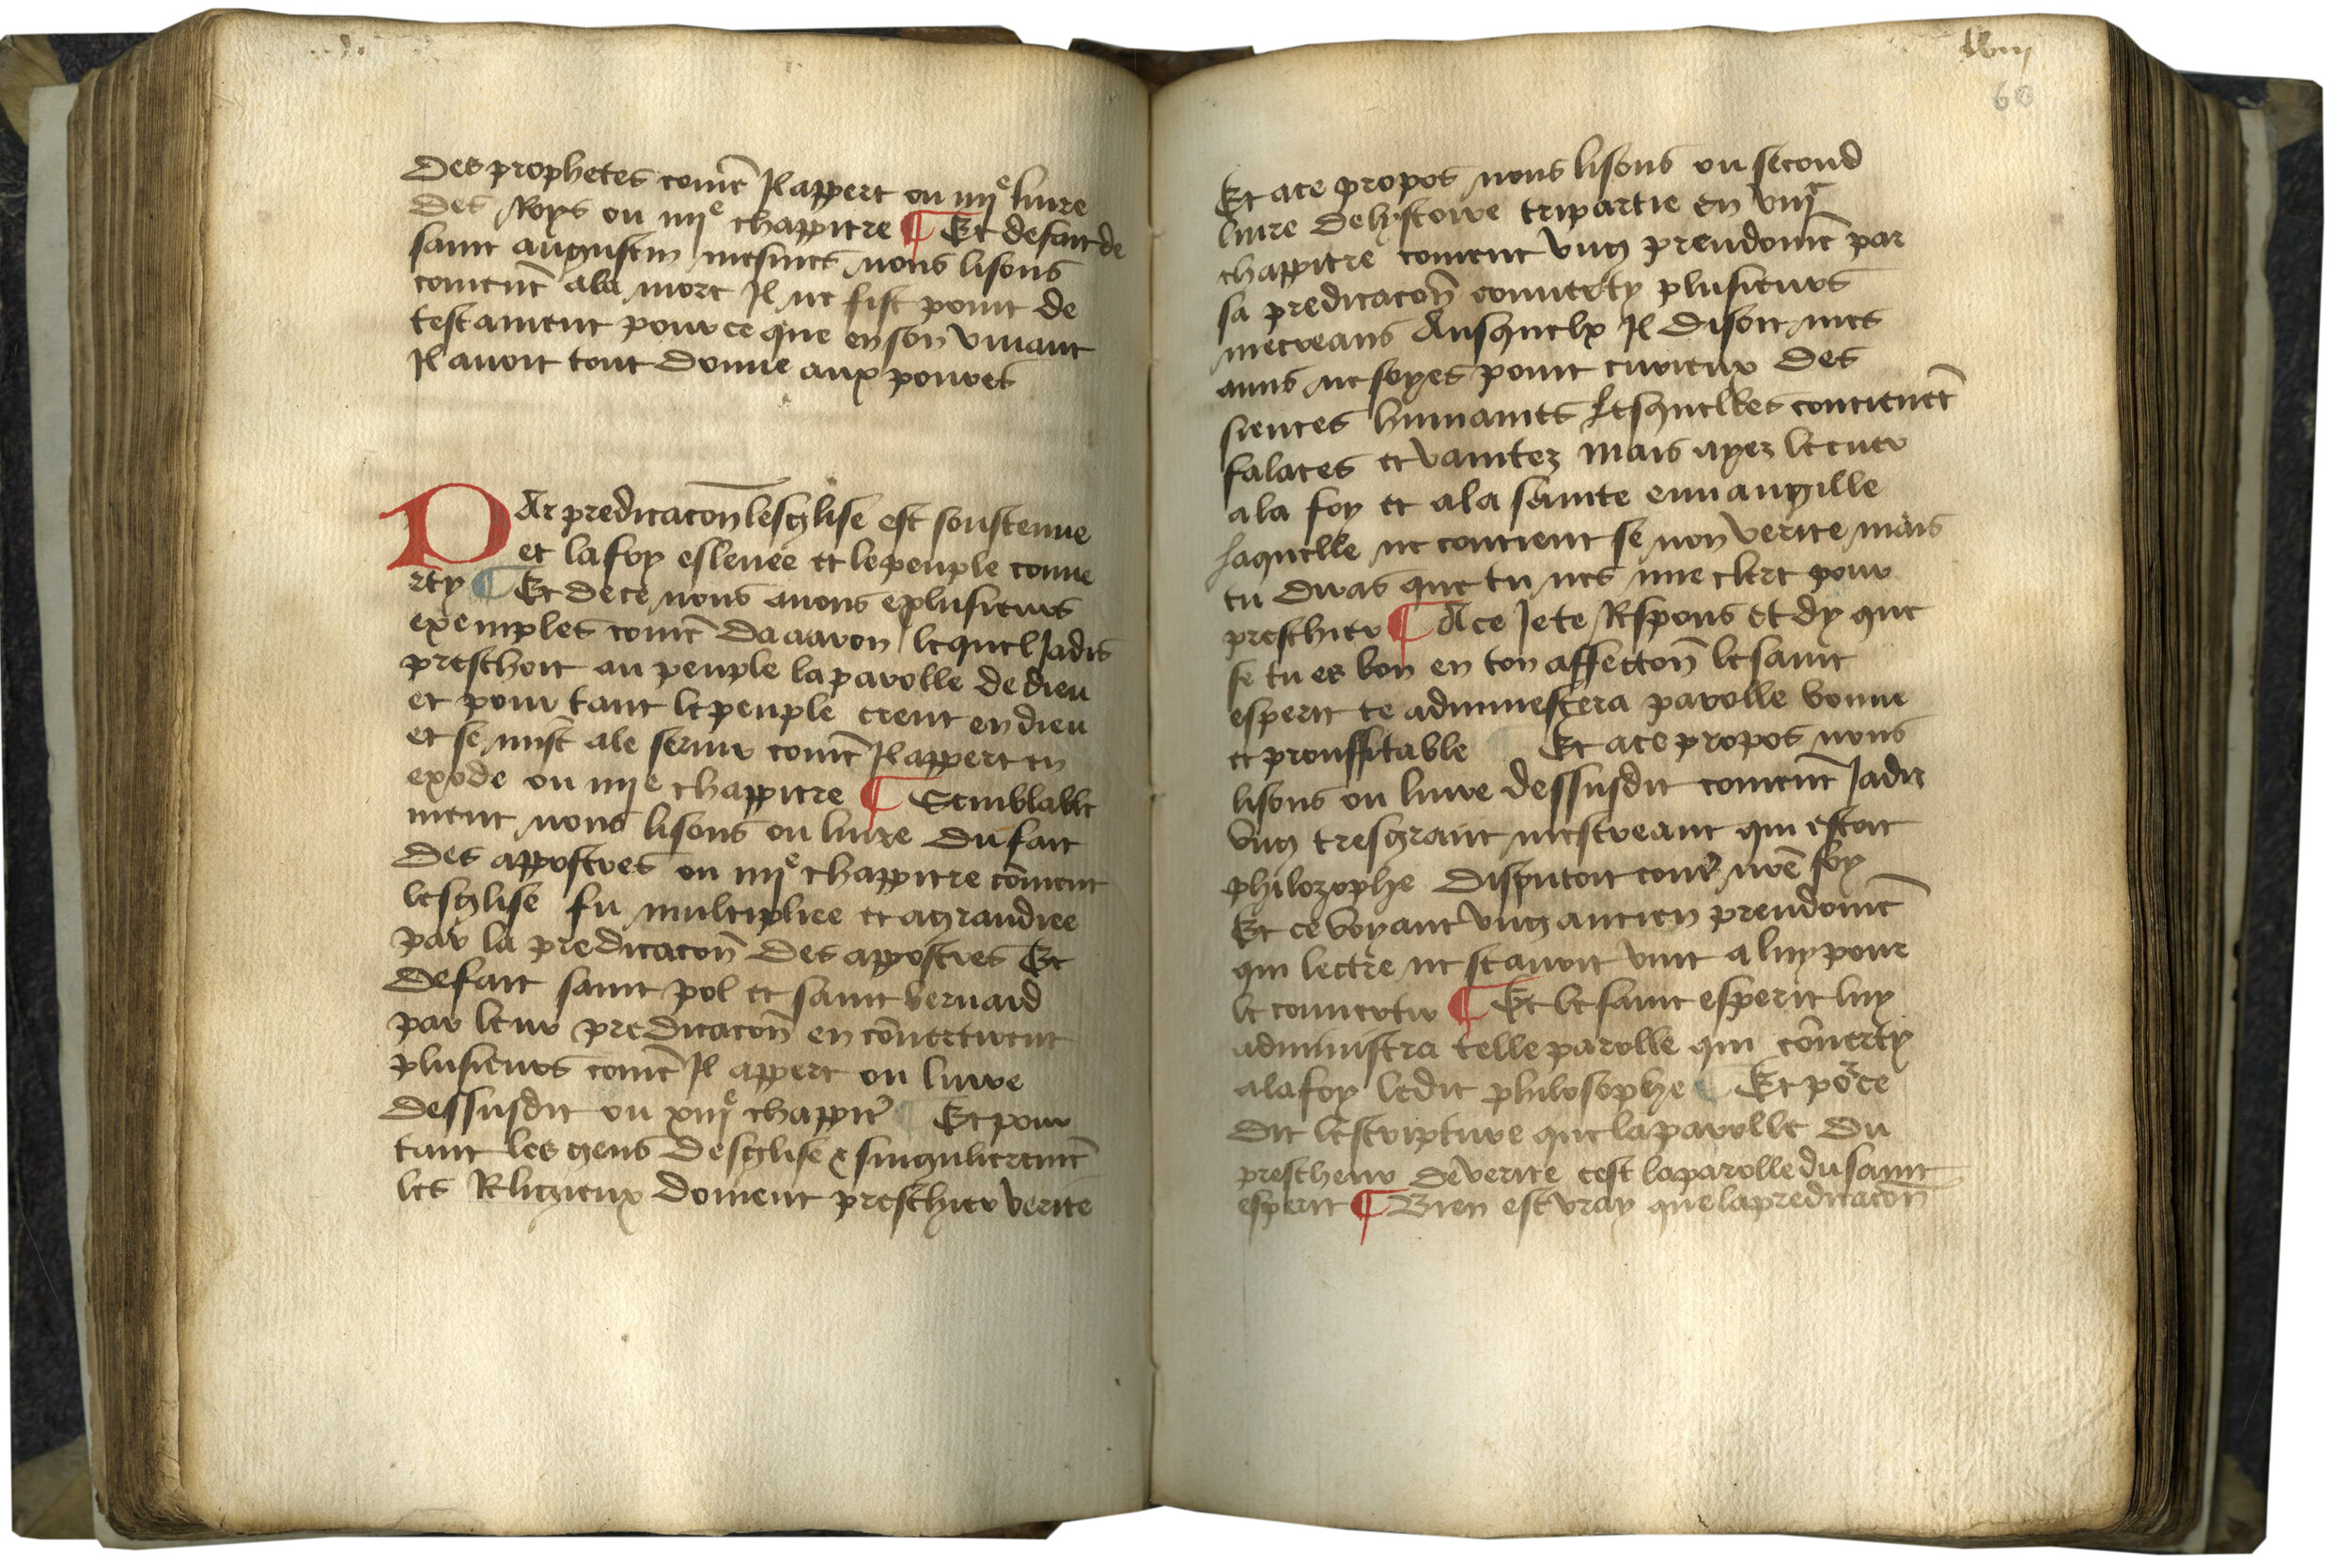 Des prophetes com̄e Il appert ou iiijᵉ liure
des Roys ou iiijᵉ chappitre ¶ Et de fait de
saint augustin mesmes nous lisons
comēt a la mort Il ne fist point de
testament pour ce que en son viuant
Il auoit tout donne aux poures
PAr predicacōn lesglise est soustenue
et la foy esleuee et le peuple conue
rty ¶ Et de ce nous auons eplusieurs
exemples com̄e da aaron lequel Jadis
preschoit au peuple la parolle de dieu
et pour tant le peuple creut en dieu
et se mist a le seruir com̄e Il appert en
exode ou iiijᵉ chappitre ¶ Semblable
ment nous lisons ou liure du fait
des appostres ou iiijᵉ chappitre cōment
lesglise fu multipliee et agrandiee
par la predicacōn des appostres Et
de fait saint pol et saint bernard
par leur predicacōn en cōuertirent
plusieurs com̄e Il appert ou liure
dessusdit ou xiiiᵉ chappit' ¶ Et pour
tant les gens desglise & singulieremēt
les Religieux doiuent preschier verite
lviij
60
Et a ce propos nous lisons ou second
liure de lystoire tripartie en viijᵉ
chappitre coment vng preudom̄e par
sa predicacōn conuerty plusieurs
mecreans Ausquelx Il disoit mes
amis ne soyes point curieux des
siences humaines Lesquelles contienēt
falaces et vanitez mais ayez le cuer
a la foy et a la sainte euuangille
Laquelle ne contient se non verite mais
tu diras que tu nes mie clerc pour
preschier ¶ A ce Je te Respons Et dy que
se tu es bon en ton affectōn le saint
esperit te admimestera parolle bonne
et prouffitable ¶ Et a ce propos nous
lisons ou liure dessusdit comēt Jadis
vng tresgrant mescreant qui estoit
philozophe disputoit cont' nr̄e foy
Et ce voyant vng ancien preudom̄e
qui lectre ne scauoit vint a luy pour
le conuertir ¶ Et le saint esperit luy
administra telle parolle qui cōuerty
a la foy ledit philosophe ¶ Et poʳ ce
dit lescripture que la parolle du
prescheur de verite cest la parolle du saint
esperit ¶ Bien est vray que la predicacōn